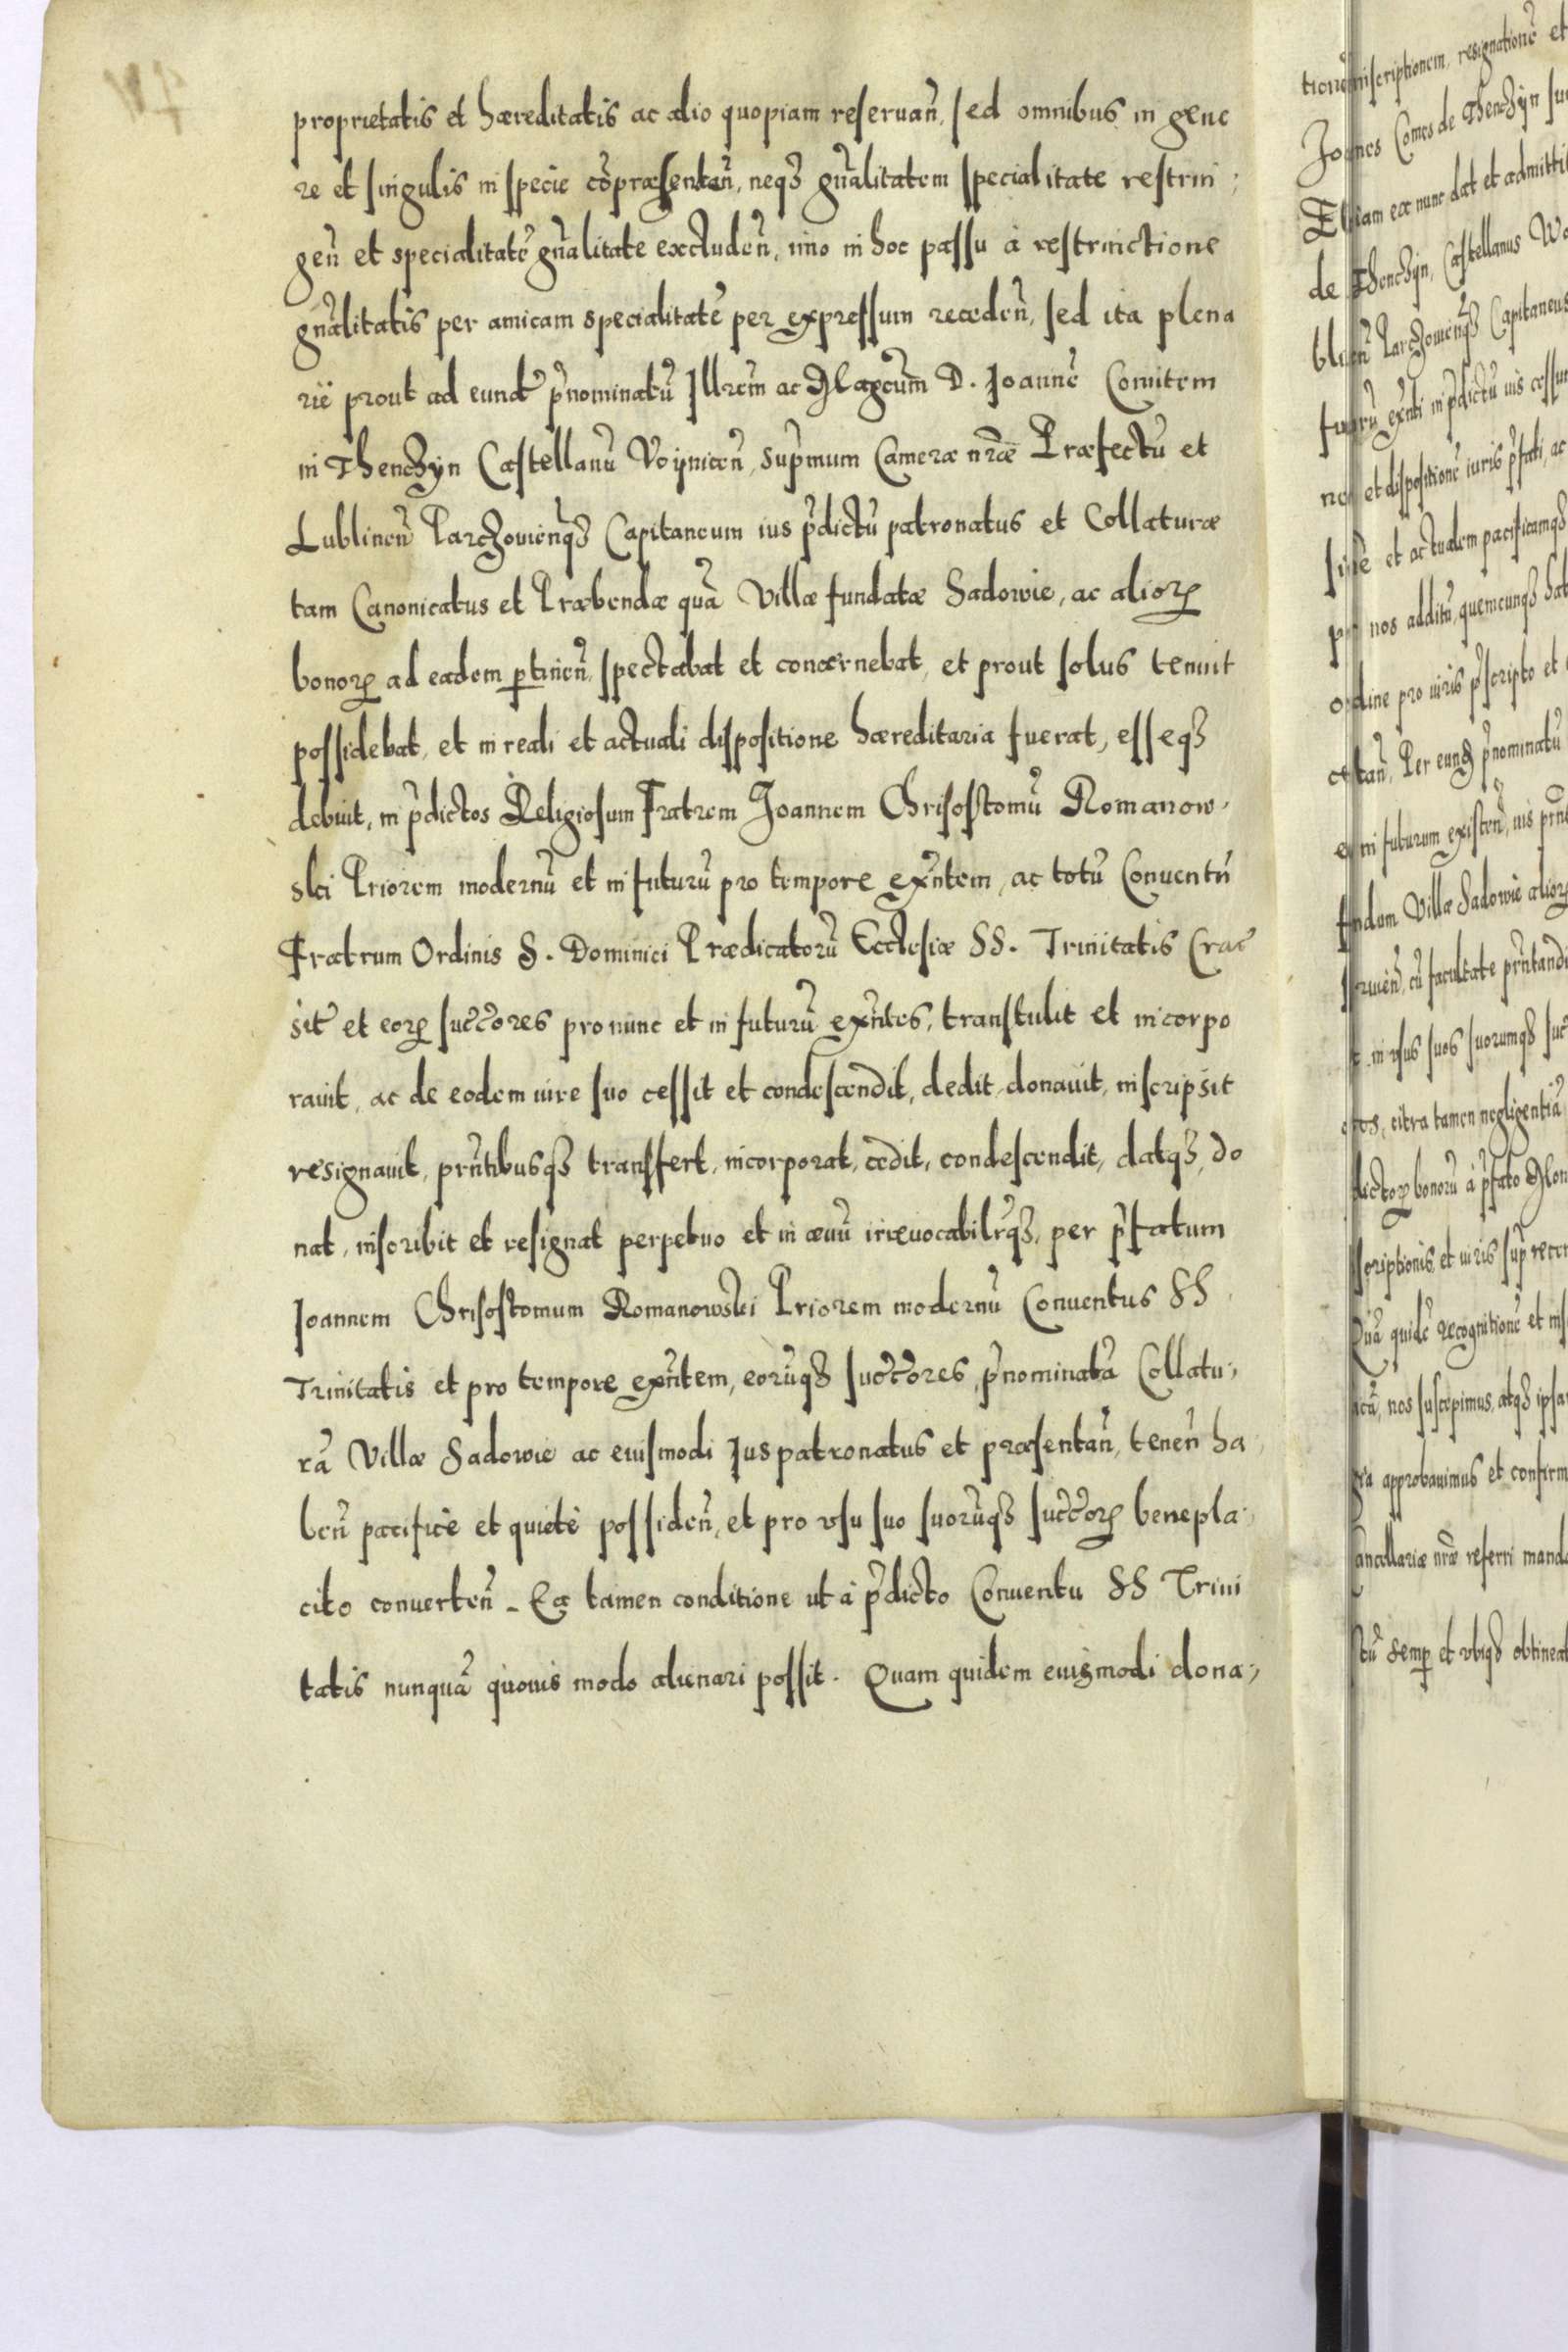 proprietatis et hæreditatis ac alio quopiam reseruan̄, sed omnibus in gene
re et singulis in specie cōpræsentan̄, neqȝ gn̄alitatem specialitate restrin:
gen̄ et specialitatē gn̄alitate excluden̄, imo in hoc passu à restrinctione
gn̄alitatis per amicam specialitatē per expressum receden̄, sed ita plena
riè prout ad eund̄ p̄nominatū Illrēm ac Mageum D. Joannē Comitem
in Thenczyn Castellanū Voijnicen̄, Sup̄mum Cameræ nr̄æ Præfectū et
Lublinen̄ Parczouien̄qȝ Capitaneum ius p̄dictū patronatus et Collaturæ
tam Canonicatus et Præbendæ quā Villæ fundatæ Sadowie, ac alioꝝ
bonoꝝ ad eadem ꝑtinen̄ spectabat et concernebat, et prout solus tenuit
possidebat, et in reali et actuali dispositione hæreditaria fuerat, esseqȝ
debuit, in p̄dictos Religiosum Fratrem Joannem Chrisostomū Romanow:
ski Priorem modernū et in futurū pro tempore exn̄tem, ac totū Conuentū
Fratrum Ordinis S. Dominici Prædicatorū Ecclesiæ SS. Trinitatis Crac̄
sit̄ et eoꝝ succ̄ores pro nunc et in futurū exn̄tes, transtulit et incorpo
rauit, ac de eodem iure suo cessit et condescendit, dedit, donauit, inscripsit
resignauit, prn̄tibusqȝ transfert, incorporat, cedit, condescendit, datqȝ, do
nat, inscribit et resignat perpetuo et in æuū irreuocabilr̄qȝ, per p̄fatum
Joannem Chrisostomum Romanowski Priorem modernū Conuentus SS.
Trinitatis et pro tempore exn̄tem, eorūqȝ succ̄ores, p̄nominatā Collatu:
rā Villæ Sadowie ac eiusmodi Jus patronatus et præsentan̄, tenen̄ ha
ben̄ pacificè et quietè possiden̄, et pro usu suo suorūqȝ succ̄oꝝ benepla:
cito conuerten̄. Ea tamen conditione ut à p̄dicto Conuentu SS Trini
tatis nunquā quouis modo alienari possit. Quam quidem eiusmodi dona:
inscriptionem, resignationē et
Comes de Thenczÿn
ex nunc dat et
de Thenczÿn, Castellanus
Parczouien̄qȝ Capitaneus
exn̄ti in p̄dictū ius
et dispositionē iuris p̄fati, ac
et actualem pacificamqȝ
nos additū, quemcunqȝ
pro iuris p̄scripto et
Per eundē p̄nominatū
in futurum existen̄, ius
Villæ Sadowie alioꝝ
cū facultate prn̄tandi
in usus suos suorumqȝ
citra tamen negligentiā
bonorū à p̄fato
et iuris
quidē recognitionē et
nos suscepimus, atqȝ
approbauimus et
nr̄æ referri
semꝑ et ubiqȝ